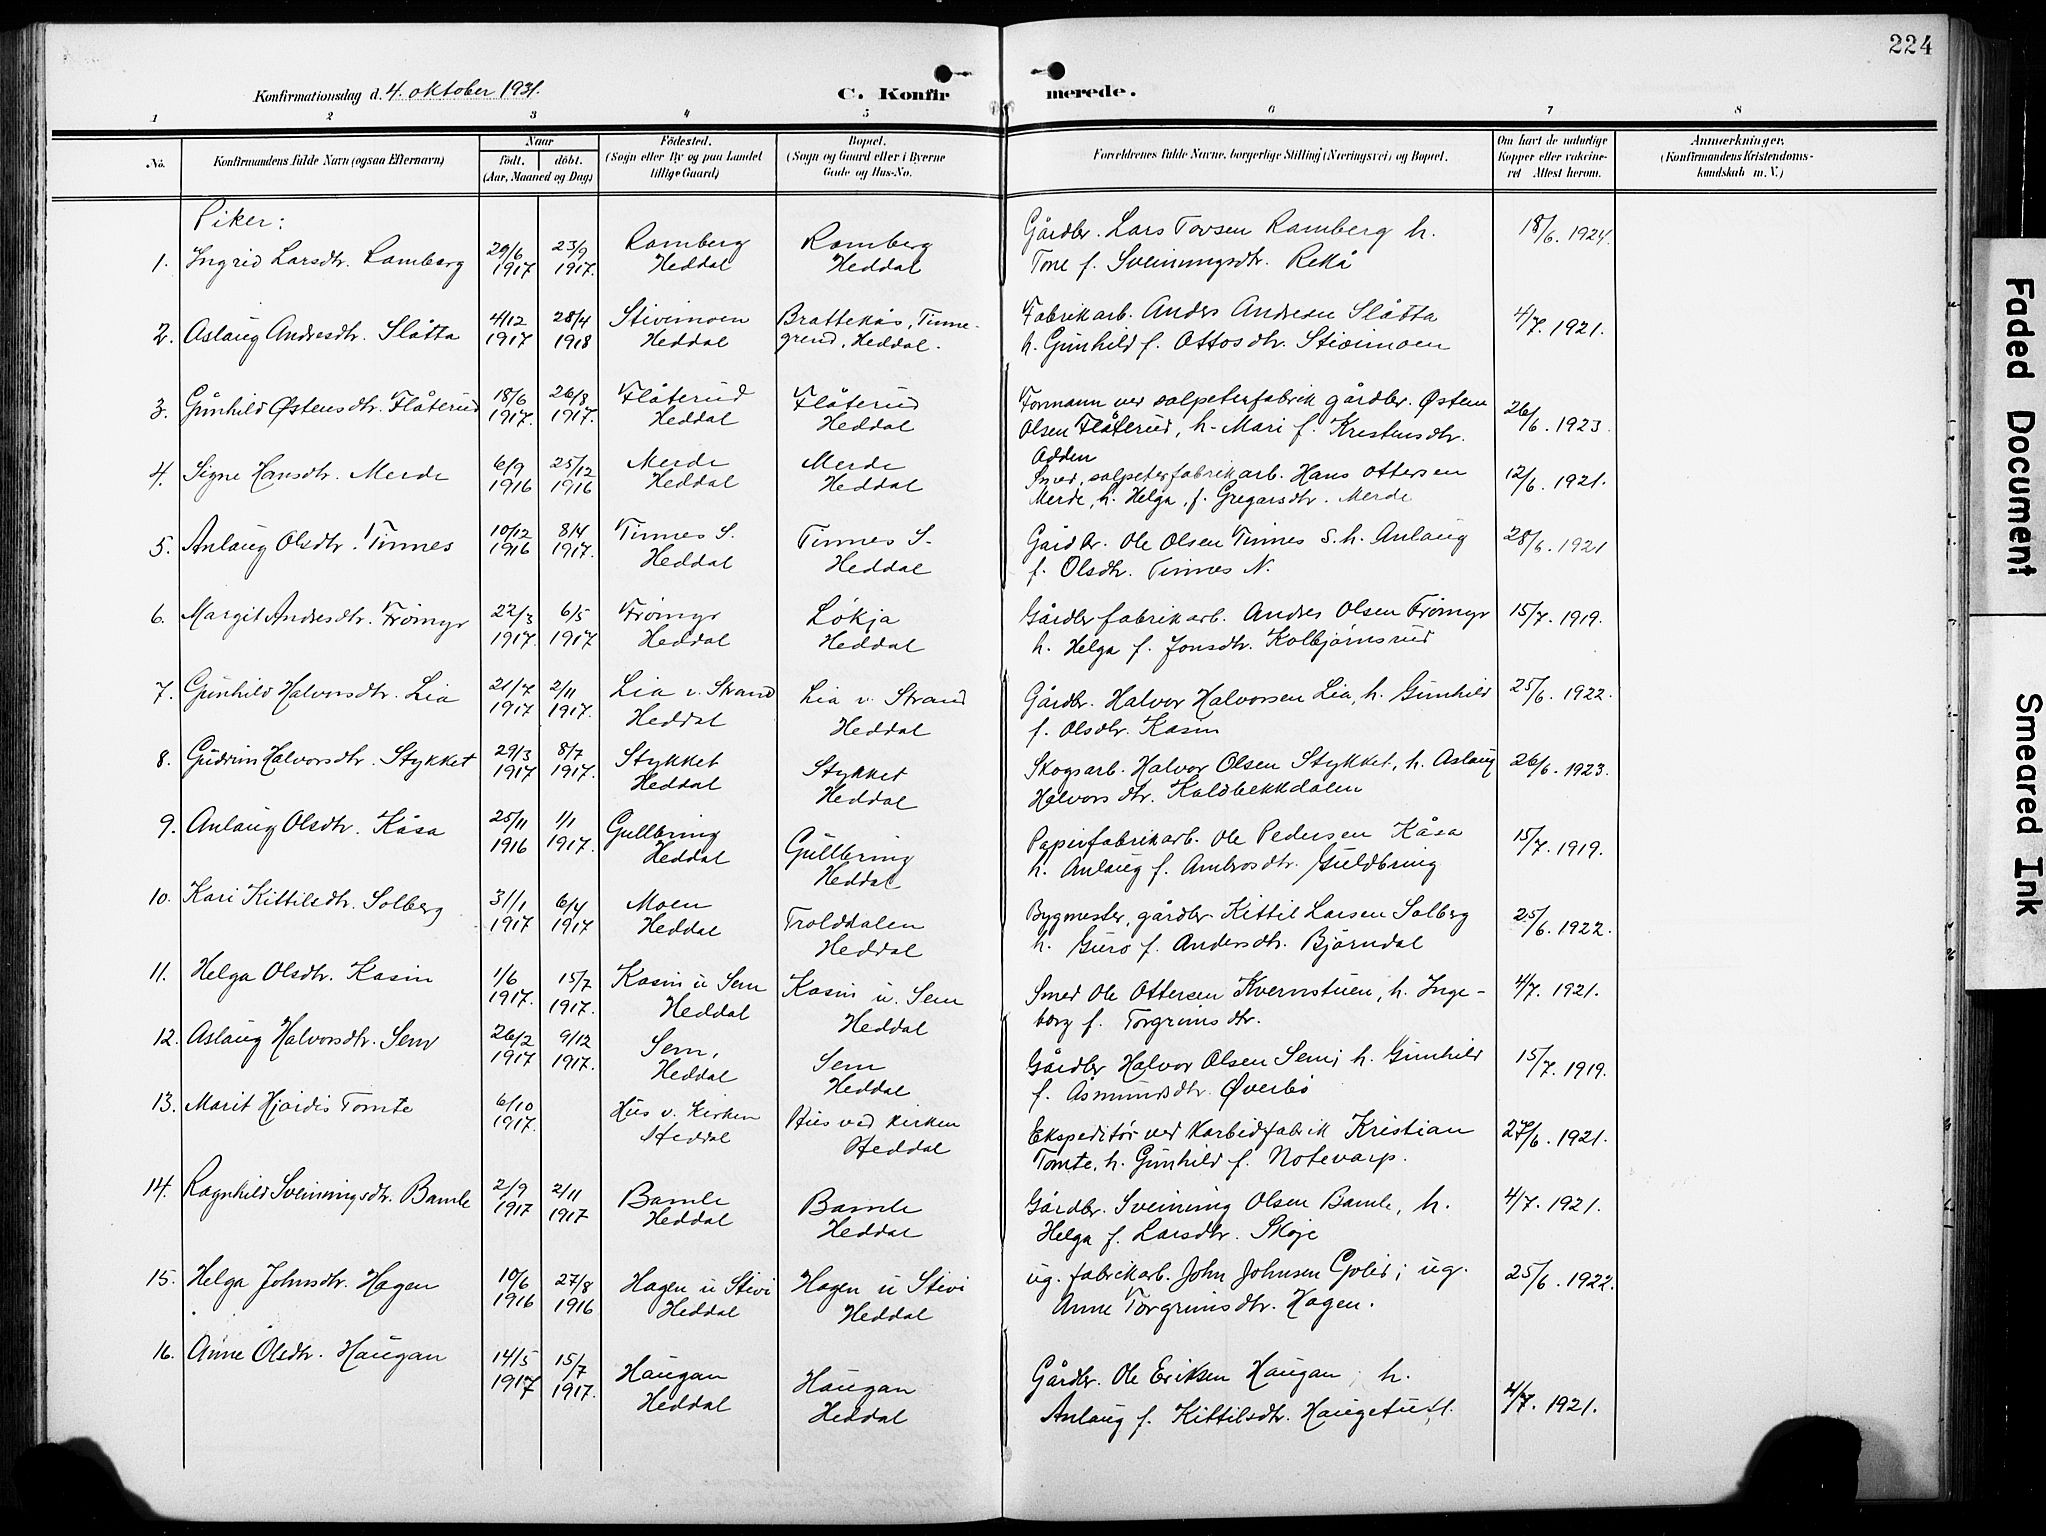 224
Konfirmationsdag d. 4. oktober 1931.
C. Konfirmerede.
1 2 3 4 5 6 7 8
No.
Konfirmandens fulde Navn (ogsaa Efternavn)
Naar
födt. döbt.
(Aar, Maaned og Dag)
Födested.
(Sogn eller By og paa Landet
tillige Gaard)
Bopæl.
(Sogn og Gaard eller i Byerne
Gade og Hus-No.
Forældrenes fulde Navne, borgerlige Stilling (Næringsvei) og Bopæl.
Om havt de naturlige
Kopper eller vakcine-
ret Attest herom.
Anmærkninger.
(Konfirmandens Kristendoms-
kundskab m. V.)
Piker:
1. Ingrid Larsdtr. Ramberg 29/6 1917 23/9 1917. Ramberg Heddal Ramberg Heddal Gårdbr. Lars Torsen Ramberg h. 18/6. 1924.
Tone f. Sveinungsdtr. Rekå
2. Aslaug Andresdtr. Slåtta 4/12 1917 28/4 1918 Stivimoen Heddal Brattekås, Tinne-grend, Heddal. Fabrikarb. Anders Andresen Slåtta 4/7. 1921.
h. Gunhild f. Ottosdtr. Stivimoen
3. Gunhild Østensdtr. Flåterud 18/6 1917. 26/8 1917. Flåterud Heddal Flåterud Heddal Formann ved salpeterfabrik gårdbr. Østen 26/6. 1923
Olsen Flåterud, h. Mari f. Kristensdtr.
Ødden
4. Signe Hansdtr. Merde 6/9 1916 25/12 1916 Merde Heddal Merde Heddal Smed, salpeterfabrikarb. Hans Ottersen 12/6. 1921.
Merde, h. Helga, f. Gregarsdtr. Merde
5. Anlaug Olsdtr. Tinnes 10/12 1916 8/4 1917. Tinnes S. Heddal Tinnes S. Heddal Gårdbr. Ole Olsen Tinnes S. h. Anlaug 28/6. 1921
f. Olsdtr. Tinnes N.
6. Margit Andresdtr. Frömyr 22/3 1917. 6/5 1917 Frömyr Heddal Lökja Heddal Gårdbr fabrikarb. Andres Olsen Frömyr 15/7. 1919.
h. Helga f. Jonsdtr. Kolbjörnsrud
7. Gunhild Halvorsdtr. Lia 21/7 1917 2/11 1917. Lia v. Strand Heddal Lia v. Strand Heddal Gårdbr. Halvor Halvorsen Lia, h. Gunhild 25/6. 1922.
f. Olsdtr. Kasin
8. Gudrun Halvorsdtr. Stykket 29/3 1917 8/7 1917. Stykket Heddal Stykket Heddal Skogsarb. Halvor Olsen Stykket, h. Aslaug 26/6. 1923.
Halvorsdtr. Kaldbekkdalen
9. Anlaug Olsdtr. Kåsa 25/11 1916 1/1 1917. Gullbring Heddal Gullbring Heddal Papirfabrikarb. Ole Pedersen Kåsa 15/7. 1919.
h. Anlaug f. Ambrosdtr. Guldbring
10. Kari Kittilsdtr. Solberg 31/1 1917 6/4 1917 Moen Heddal Trolddalen Heddal Bygmester, gårdbr. Kittil Larsen Solberg 25/6. 1922.
h. Guro f. Andersdtr. Björndal
11. Helga Olsdtr. Kasin 1/6 1917. 15/7 1917. Kasin u Sem Heddal Kasin u. Sem Heddal Smed Ole Ottersen Kvernstuen, h. Inge- 4/7. 1921.
borg f. Torgrimsdtr.
12. Aslaug Halvorsdtr. Sem 26/2 1917 9/12 1917. Sem, Heddal Sem Heddal Gårdbr Halvor Olsen Sem; h. Gunhild 15/7. 1919.
f. Åsmundsdtr. Øverbö
13. Marit Hjördis Tomte 6/10 1917. Hus v. Kirken Heddal Hus ved kirken Heddal Ekspeditör ved Karbidfabrik Kristian 27/6. 1921.
Tomte, h. Gunhild f. Notevarp.
14. Ragnhild Sveinungsdtr. Bamle 2/9 1917 2/11 1917 Bamle Heddal Bamle Heddal Gårdbr. Sveinung Olsen Bamle, h. 4/7. 1921.
Helga f. Larsdtr. Skoje
15. Helga Johnsdtr. Hagen 10/6 1916 27/8 1916 Hagen u Stivi Heddal Hagen u Stivi Heddal ug. fabrikarb. John Johnsen Goli; ug. 25/6. 1922.
Anne Torgrimsdtr. Hagen.
16. Anne Olsdtr. Haugan 14/5 1917 15/7 1917. Haugan Heddal Haugan Heddal Gårdbr. Ole Eriksen Haugan, h.
Anlaug f. Kittilsdtr. Haugetuft. 4/7. 1921.
Faded Document
Smeared Ink